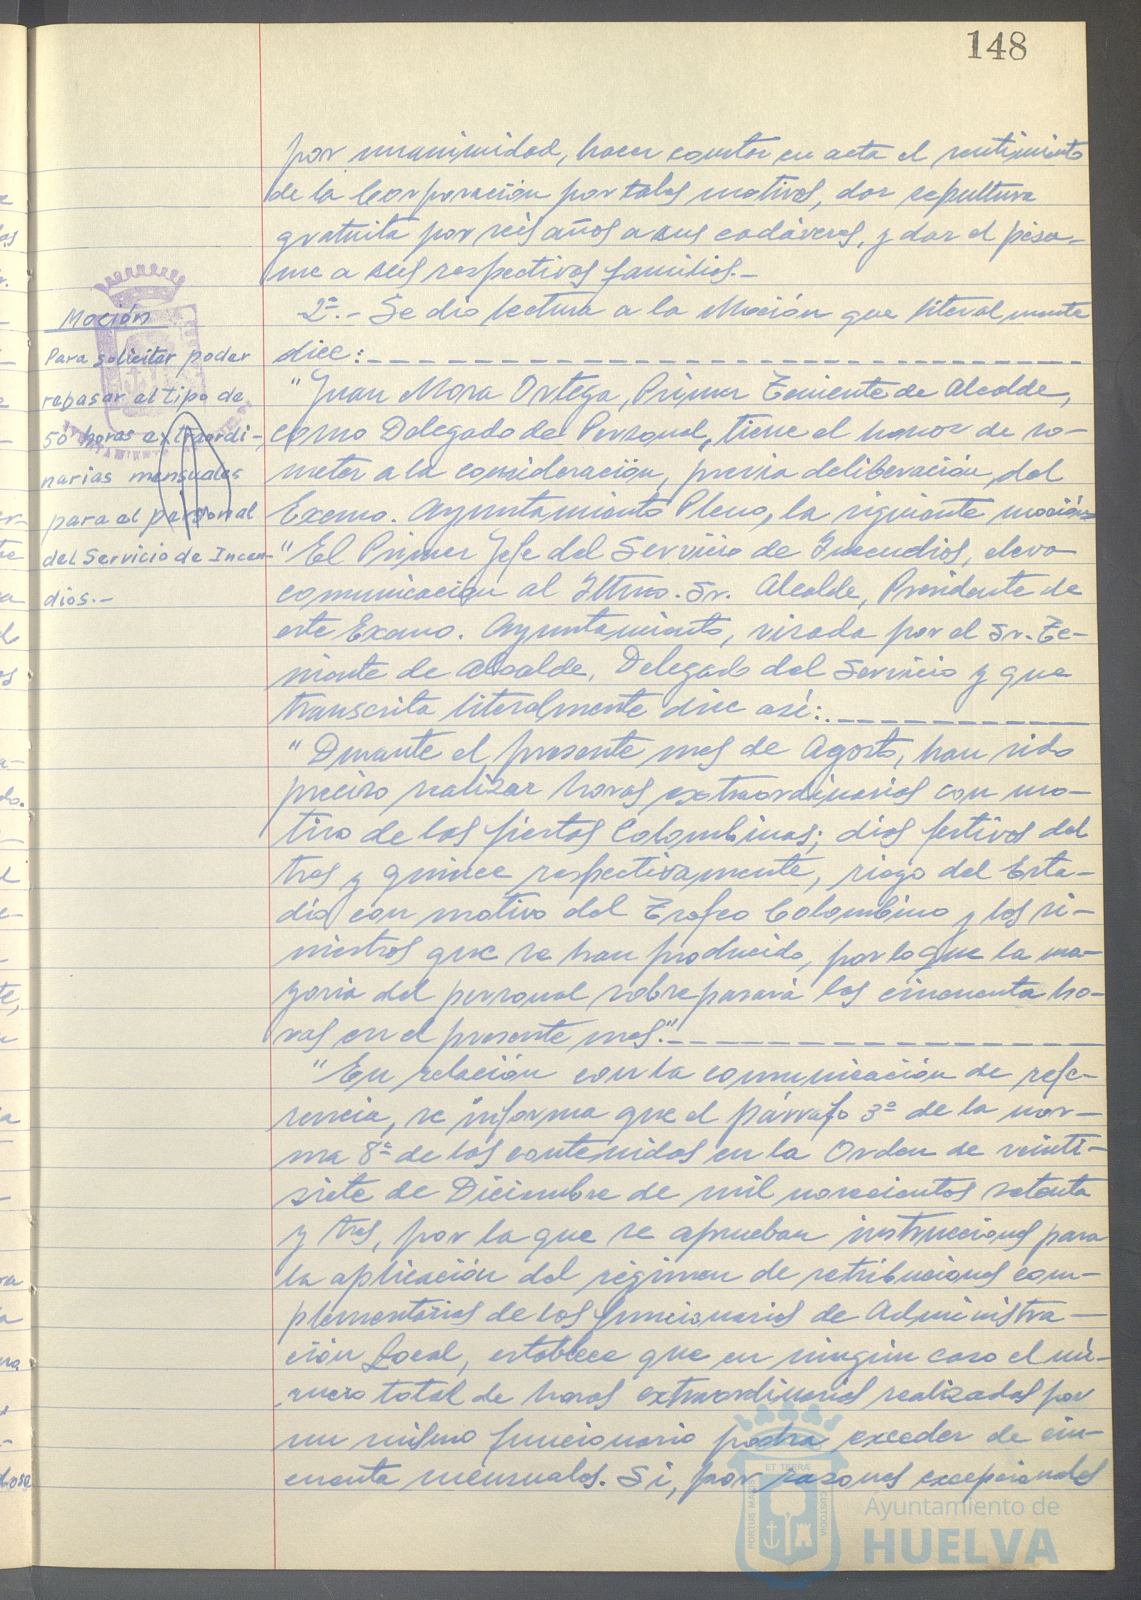 148
por unanimidad, hacer constar en acta el sentimiento
de la Corporación por tales motivos, dar sepultura
gratuita por seis años a sus cadáveres, y dar el pésa-
me a sus respectivas familias.-
Moción
Para solicitar poder
rebasar el tipo de
50 horas extraordi-
narias mensuales
para el personal
del Servicio de Incen-
dios.-
2º.- Se dio lectura a la Moción que literalmente
dice:
"Juan Mora Ortega, Primer Teniente de Alcalde,
como Delegado de Personal, tiene el honor de so-
meter a la consideración, previa deliberación, del
Excmo. Ayuntamiento Pleno, la siguiente moción:
"El Primer Jefe del Servicio de Incendios, eleva
comunicación al Iltmo. Sr. Alcalde, Presidente de
este Excmo. Ayuntamiento, visada por el Sr. Te-
niente de Alcalde, Delegado del Servicio y que
transcrita literalmente dice así:
"Durante el presente mes de Agosto, han sido
preciso realizar horas extraordinarias con mo-
tivo de las fiestas Colombinas; días festivos del
tres y quince respectivamente, riego del Esta-
dio con motivo del Trofeo Colombino y los si-
niestros que se han producido, por lo que la ma-
yoria del personal sobrepasará las cincuenta ho-
ras en el presente mes."
"En relación con la comunicación de refe-
rencia, se informa que el párrafo 3º de la nor-
ma 8ª de las contenidas en la Orden de veinti-
siete de Diciembre de mil novecientos setenta
y tres, por la que se aprueban instrucciones para
la aplicación del régimen de retribuciones com-
plementarias de los funcionarios de Administra-
ción Local, establece que en ningún caso el nú-
mero total de horas extraordinarias realizadas por
un mismo funcionario podra exceder de cin-
cuenta mensuales. Si, por razones excepcionales
ET TERRA
PORTUS MARIS
CUSTODIA
Ayuntamiento de
HUELVA